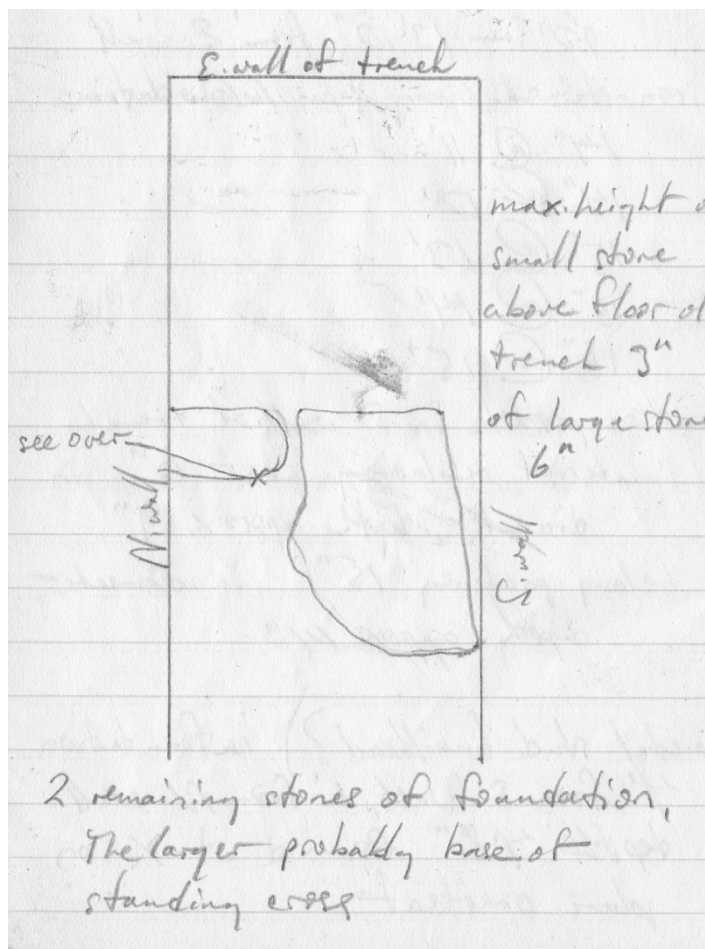 E. wall of trench
max. height o
small stone
above floor of
trench 3"
of large stone
6"
see over
N. wall
x
S. wall
2 remaining stones of foundation,
The larger probably base of
standing cross